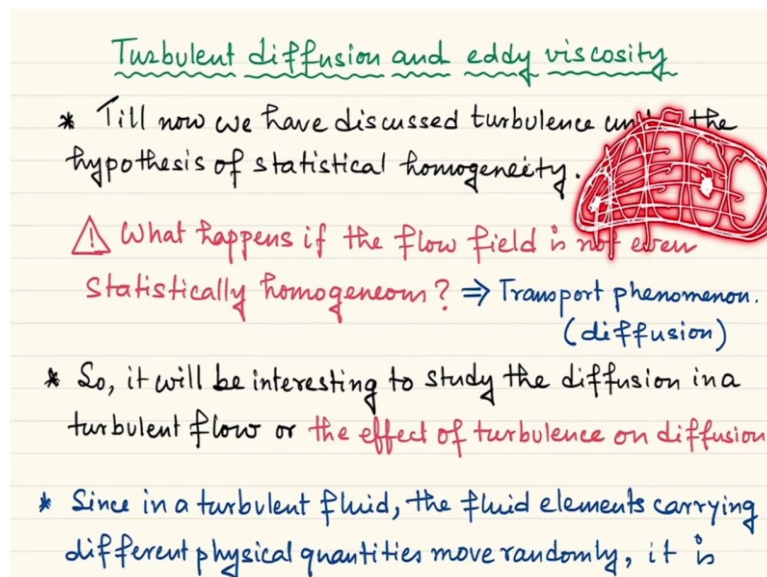 Turbulent diffusion and eddy viscosity
* Till now we have discussed turbulence the
hypothesis of statistical homogeneity.
⚠ What happens if the flow field is not even
statistically homogeneous? ⇒ Transport phenomenon.
(diffusion)
* So, it will be interesting to study the diffusion in a
turbulent flow or the effect of turbulence on diffusion
* Since in a turbulent fluid, the fluid elements carrying
different physical quantities move randomly, it is